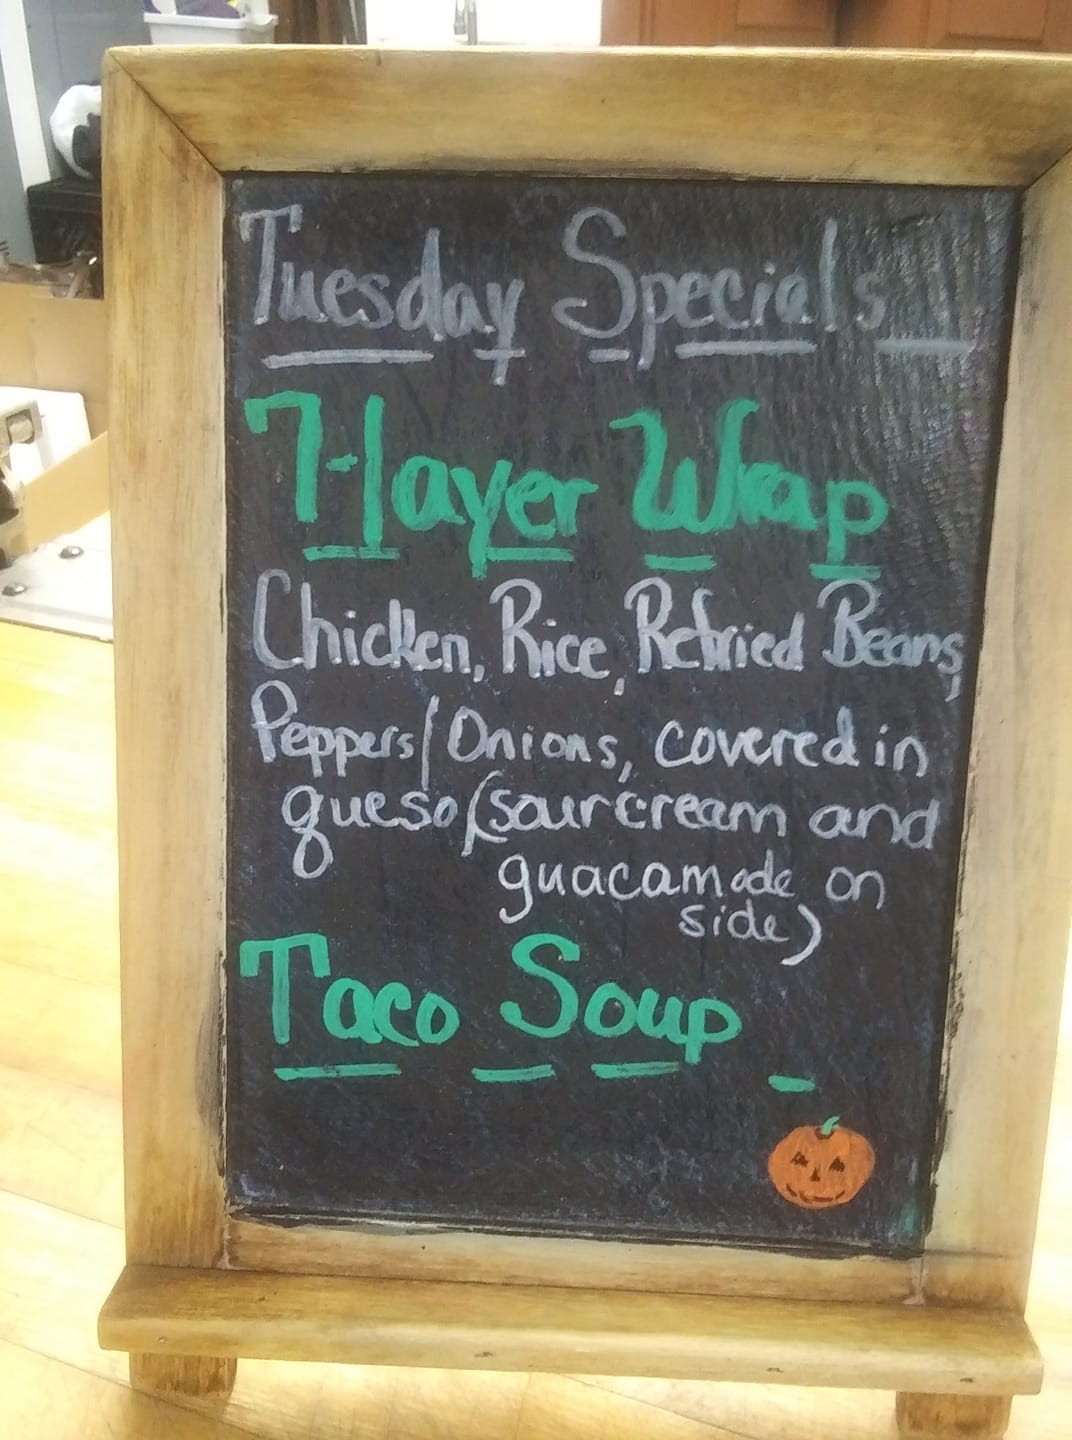 Tuesday Specials
7-layer Wrap
Chicken, Rice, Refried Beans,
Peppers/Onions, covered in
queso (sour cream and
guacamole on
side)
Taco Soup